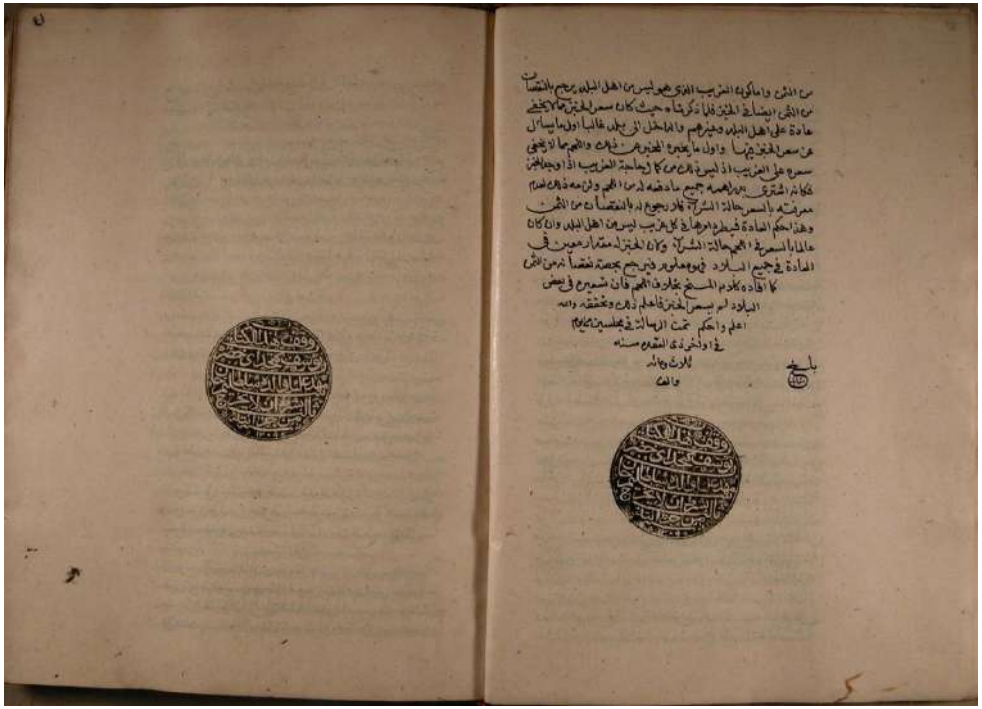 من الثمن واما كون الغريب الذي هو ليس من اهل البلد يرجع بالنقصان
من الثمن ايضا في الخبز فلما ذكرناه حيث كان سعر الخبز مما لا يخفى
عادة على اهل البلد وغيرهم والداخل الى بلد غالبا اول ما يسأل
عن سعر الخبز فيها واول ما يخبره المخبر عن ذلك واللحم مما لا يخفى
سعره على الغريب اذ ليس ذلك من كمال حاجة الغريب اذا وجد الخبز
فكانه اشترى بدراهمه جميع ما دفعه له من اللحم ولزمه ذلك لعدم
معرفته بالسعر حالة الشراء فلا رجوع له بالنقصان من الثمن
وهذا حكم العادة فيطرد امرها في كل غريب ليس من اهل البلد وان كان
عالما بالسعر في اللحم حالة الشراء وكان الخبز له مقدار معين في
العادة في جميع البلاد فهو معلوم فيرجع بحصة نقصانه من الثمن
كما افاده كلام المصنف بخلاف اللحم فان تسعيره في بعض
البلاد لم يسعر الخبز فاعلم ذلك وتحققه والله
اعلم واحكم تمت الرسالة في مجلسين من يوم
في اواخر ذي القعدة سنة
ثلاث ومائة
والف
بلغ
وقف هذا الكتاب
يوسف
١٢٠٩
٤١
وقف هذا الكتاب
يوسف
١٢٠٩